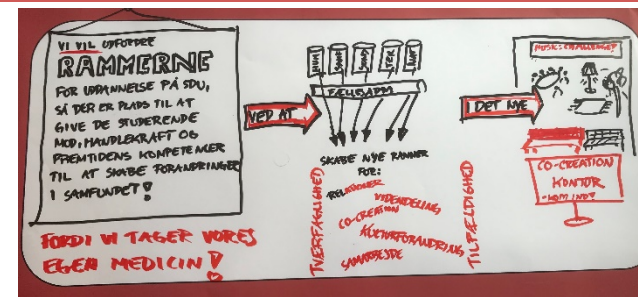 VI VIL UDFORDRE
RAMMERNE
FOR UDDANNELSE PÅ SDU,
SÅ DER ER PLADS TIL AT
GIVE DE STUDERENDE
MOD, HANDLEKRAFT OG
FREMTIDENS KOMPETENCER
TIL AT SKABE FORANDRINGER
I SAMFUNDET!
FORDI VI TAGER VORES
EGEN MEDICIN!
VED AT
HUM
SAMF
SUND
TEK
NAT
FÆLLESADM
SKABE NYE RAMMER
FOR:
RELATIONER
VIDENDELING
CO-CREATION
KULTURFORANDRING
SAMARBEJDE
TVÆRFAGLIGHED
TILFÆLDIGHED
I DET NYE
CO-CREATION
KONTOR
- KOM IND!